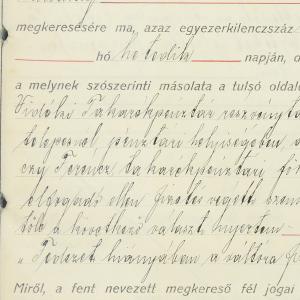 megkeresésére ma, azaz egyezerkilenczszáz
hó hetedik napján, d
a melynek szószerinti másolata a tulsó oldal
Vidéki Takarékpénztár részvényta
telepénél pénztári helyiségében,
czy Ferencz takarékpénztári fő
elfogadó ellen fizetés végett
tőle a következő választ nyertem
„Fedezet hiányában a váltóra
Miről, a fent nevezett megkereső fél jogai